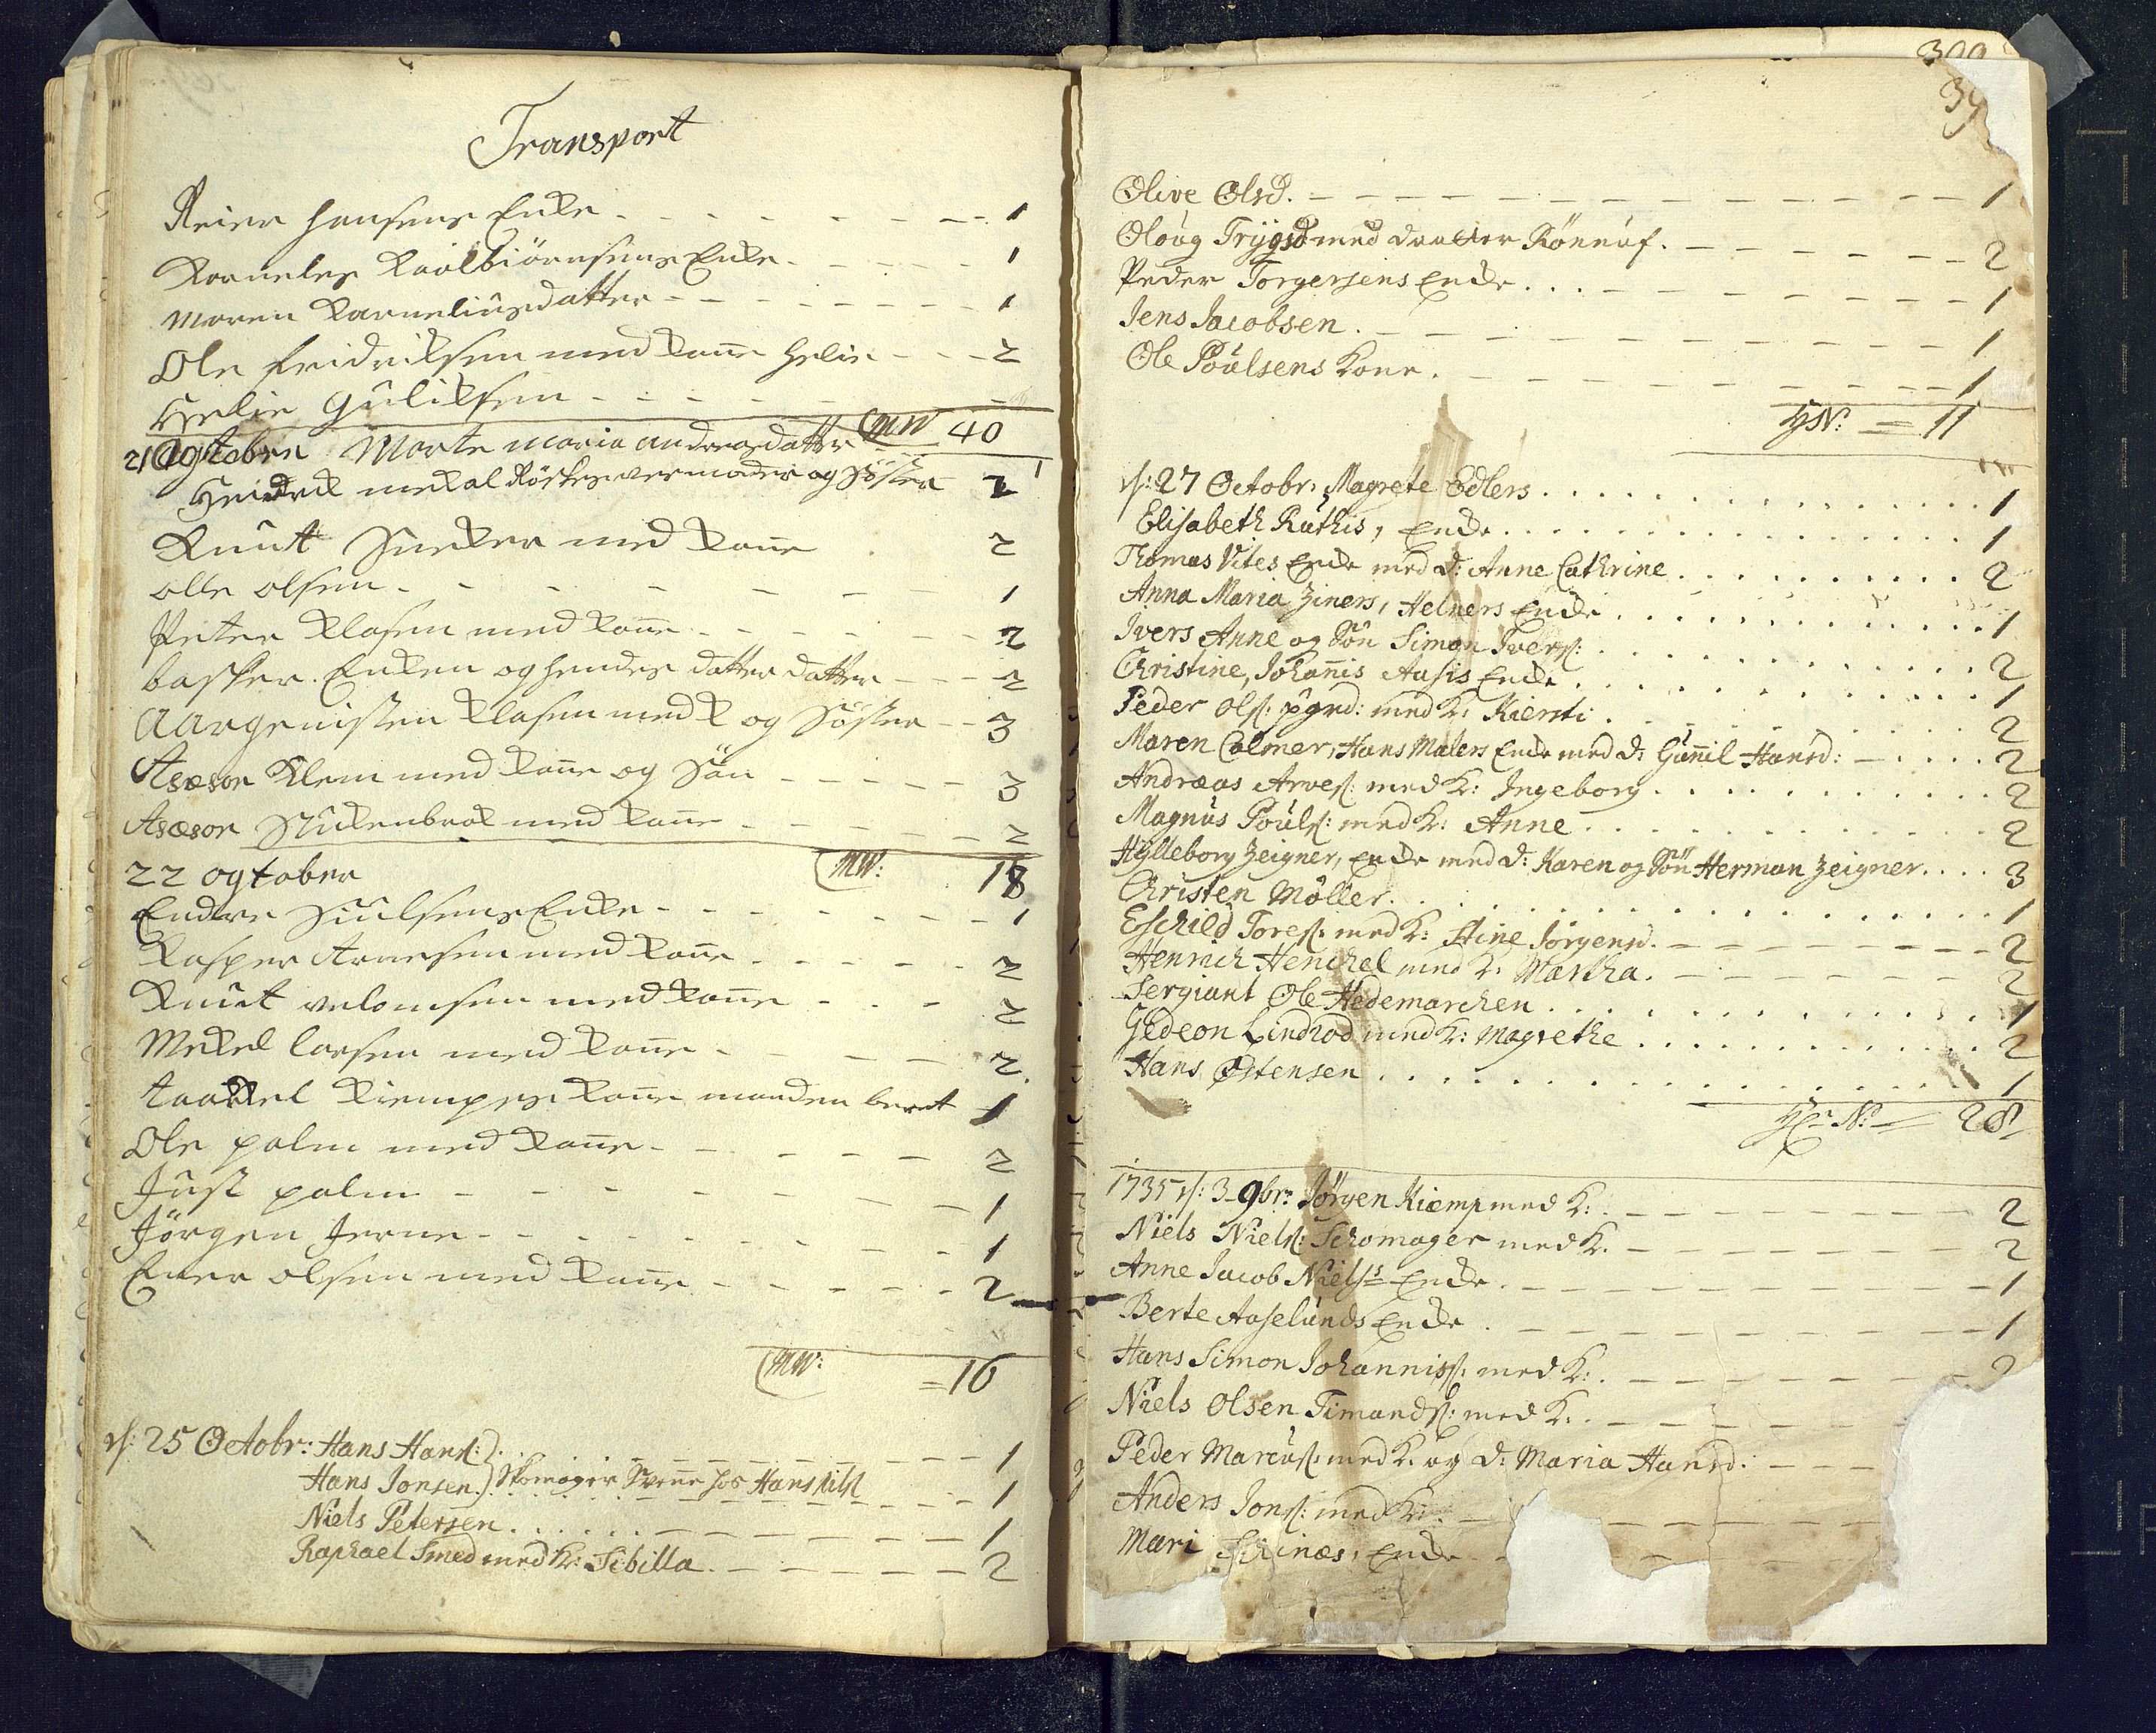 Transport
Reier Hansens Enke - - - 1
Korneles Karlbiörnsens Enke - - - 1
Maren Karneliusdatter - - - 1
Ole Fridriksen med kone Helie - - - 2
Helie Guliksen - - -
MW 40
21 Ogtober Marte Maria Andersdatter - 1
Heidrik mekal Röskes vermoder og Söster 2
Knut Sneker med kone 2
Olle Olsen - - - 1
Peter Klasen med kone - - - 2
Casper Enken og hendes datter datter - - - 2
Klasen med k og Söster - - 3
Asæsor Klem med kone og Sön - - - 3
Asæsor Stukenbrok med kone - - - 2
22 ogtober MW: 18
Endre Siulsens Enke - - - 1
Kasper Arnesen med kone - - - 2
Knut velomsen med kone - - - 2
Mekel Larsen med kone - - - 2
Kiempes kone manden bort 1
Ole palm med kone - - - 2
Just palm - - - 1
Jörgen Jerne - - - 1
Ener Olsen med kone - - - 2
MW: = 16
d: 25 Octobr: Hans Hans: - - - 1
Hans Jonsen. Skomager Svenne hos Hans - - - 1
Niels Petersen . . . - - - 1
Raphael Smed med K: Sibilla. - - - 2
399
39
Olive Olsd. - - - 1
Oloug Trygsd med daatter Rönnuf. - - - 2
Peder Torgersens Encke . . . - - - 1
Jens Jacobsen. - - - 1
Ole Poulsens Kone. - - - 1
No: = 11
d: 27 Octobr: Magrete Edlers . . . 1
Elisabeth Ruthis, Encke . . . 1
Thomas Vites Encke med d: Anne Cathrine . . . 2
Anna Maria Ziners, Helners Encke . . . 1
Ivers Anne og Sön Simon Ivers: . . . 2
Christine, Johannis Aasis Encke . . . 1
Peder Ols: med K: Kiersti . . . 2
Maren Colmer, Hans Malers Encke med d: Gunnil Hansd: - . . . 2
Andræas Arves: med K: Ingeborg . . . 2
Magnus Pouls: med K: Anne . . . 2
Hylleborg Zeigner, Encke med d: Karen og Sön Herman Zeigner . . . 3
Christen Möller . . . 1
Eschild Tores: med K: Stine Jörgensd. - - - 2
Henrich Henchel med K: Martha. - - - 2
Sergiant Ole Hedemarchen . . . 1
Gedeon Lindrod med K: Magrethe . . . 2
Hans Østensen . . . 1
No = 28
1735 d: 3 9br: Jörgen Kiemp med K: - - - 2
Niels Niels: Schomager med K. - - - 2
Anne Jacob Niels: Encke. - - - 1
Berte Aaselunds Encke . - - - 1
Hans Simon Johanniss: med K: . - - - 2
Niels Olsen Timands: med K: . - - -
Peder Marcus: med K. og d: Maria Hansd: - - -
Anders Jons: med K: . - - -
Mari Schinæs, Encke - - -